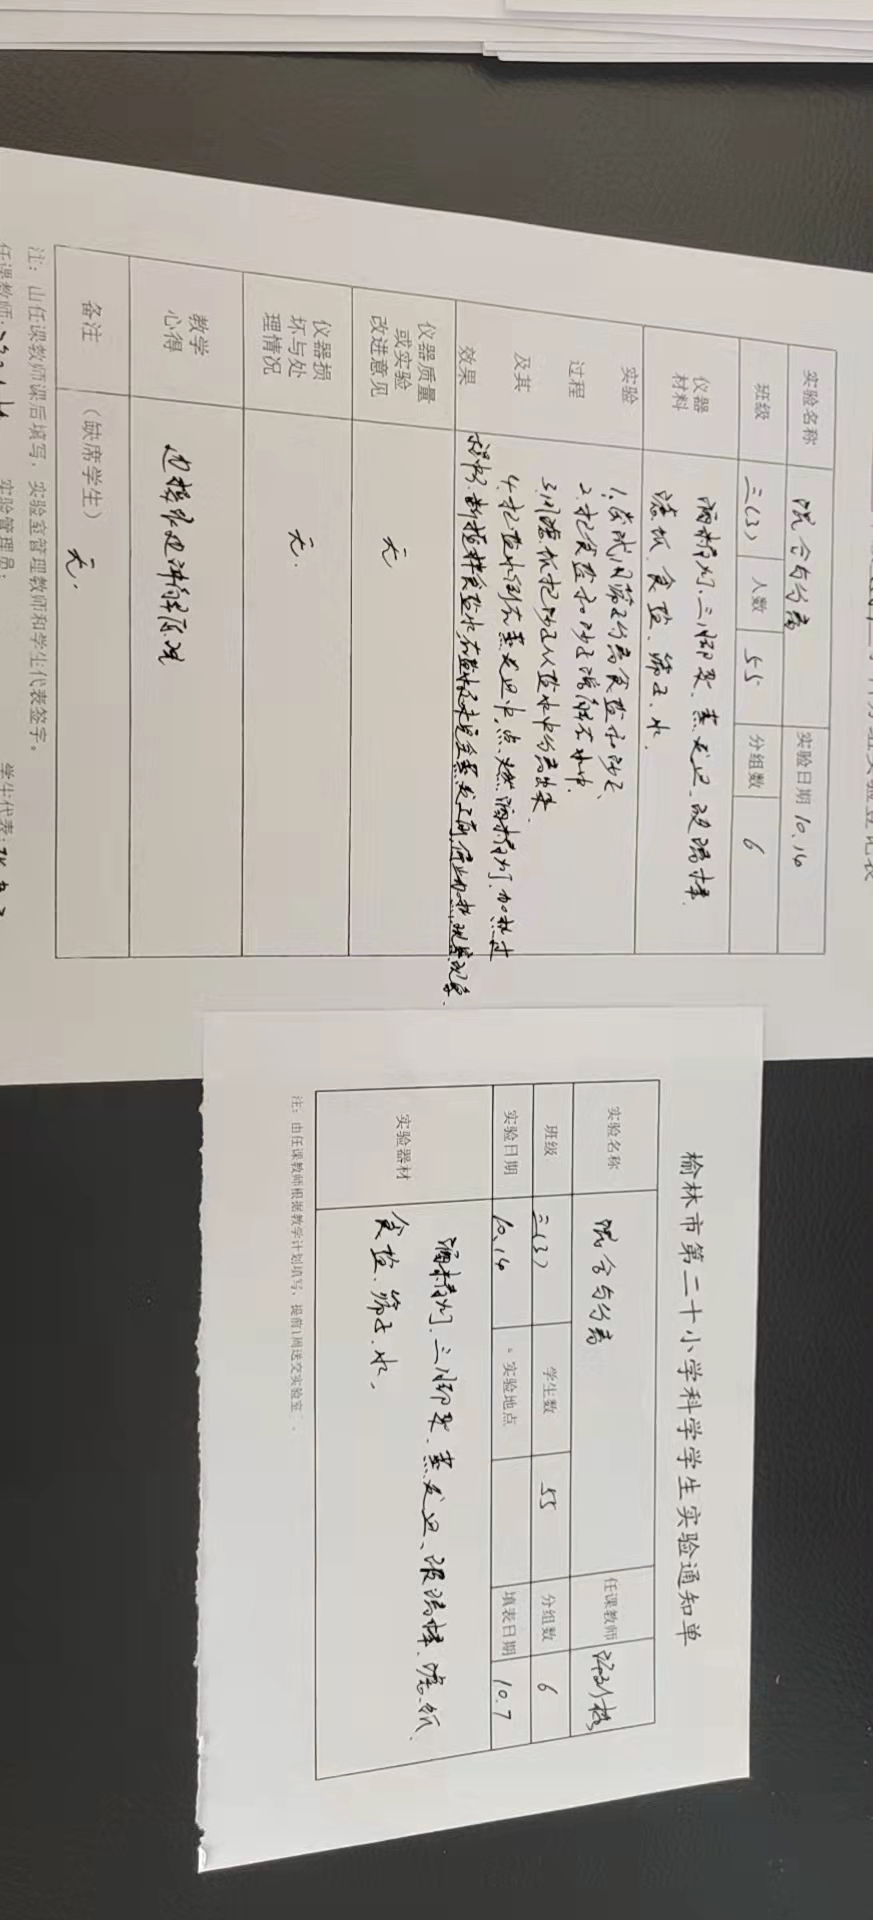 实验名称 混合与分离 实验日期 10.14
班级 三(3) 人数 55 分组数 6
仪器材料 酒精灯、三脚架、蒸发皿、玻璃棒、
滤纸、食盐、筛子、水、
实验过程及其效果
1.尝试用筛子分离食盐和沙子、
2.把食盐和沙子溶解在水中.
3.用滤纸把沙子从盐水中分离出来
4.把盐水倒在蒸发皿中,点燃酒精灯,加热过
程中不断搅拌食盐水,在盐水还未完全蒸发之前,停止加热,观察现象.
仪器质量或实验改进意见 无
仪器损坏与处理情况 无.
教学心得 边操作边讲解原理
备注 (缺席学生) 无.
注:由任课教师课后填写,实验室管理教师和学生代表签字。
任课教师: 实验管理员: 学生代表:
榆林市第二十小学科学学生实验通知单
实验名称 混合与分离 任课教师
班级 三(3) 学生数 55 分组数 6
实验日期 10.14 实验地点 填表日期 10.7
实验器材 酒精灯、三脚架、蒸发皿、玻璃棒、滤纸、
食盐、筛子、水、
注:由任课教师根据教学计划填写,提前1周送交实验室。